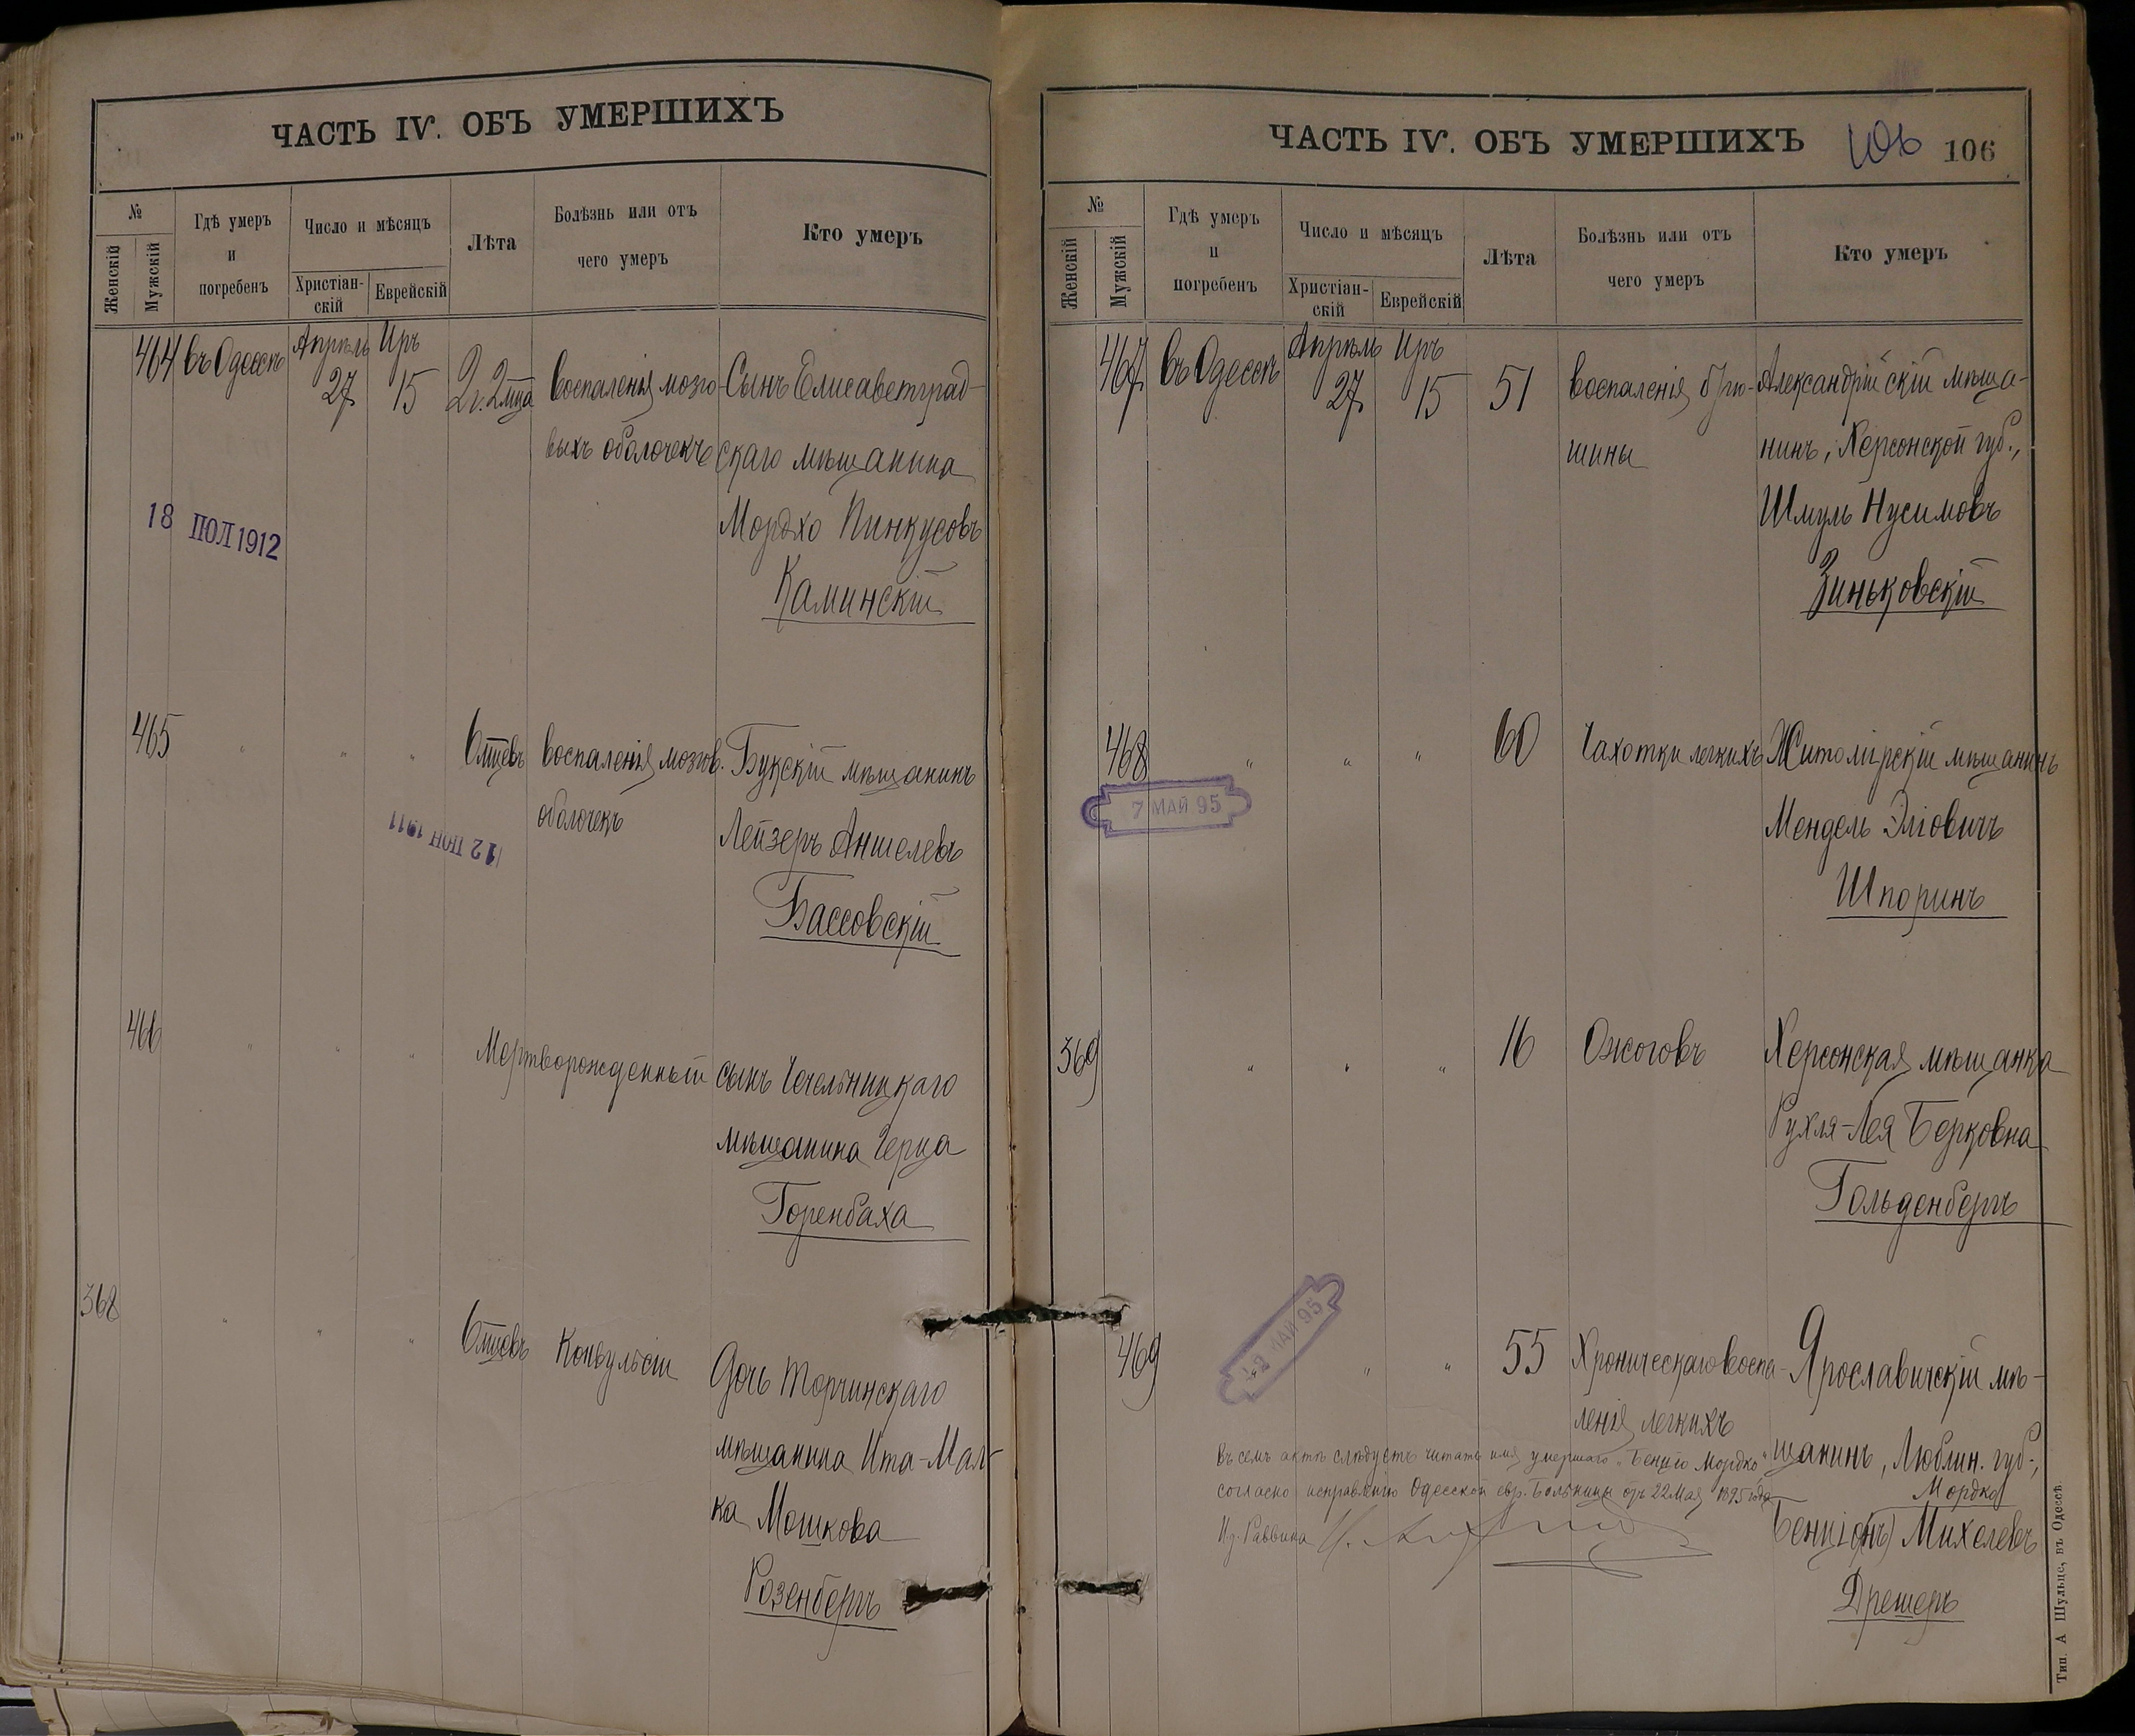 ЧАСТЬ IV. ОБЪ УМЕРШИХЪ
№
Женскій
Мужскій
Гдѣ умеръ
и
погребенъ
Число и мѣсяцъ
Христіан-
скій
Еврейскій
Лѣта
Болѣзнь или отъ
чего умеръ
Кто умеръ
464 въ Одессѣ Апрѣль 27 Иръ 15 2 г. 2 мца воспаленія мозго- Сынъ Елисаветград-
выхъ оболочекъ скаго мѣщанина
Мордхо Пинкусовъ
Каминскій
18 ІЮЛ 1912
465 " " " 6 мцевъ воспаленія мозгов. Букскій мѣщанинъ
оболочекъ Лейзеръ Аншелевъ
Бассовскій
12 ІЮН 1911
466 " " " Мертворожденный сынъ Чечельницкаго
мѣщанина Герца
Горенбаха
368 " " " 6 мцевъ Конвульсіи Дочь Торчинскаго
мѣщанина Ита-Мал-
ка Мошкова
Розенбергъ
ЧАСТЬ IV. ОБЪ УМЕРШИХЪ 106 106
№
Женскій
Мужскій
Гдѣ умеръ
и
погребенъ
Число и мѣсяцъ
Христіан-
скій
Еврейскій
Лѣта
Болѣзнь или отъ
чего умеръ
Кто умеръ
467 въ Одессѣ Апрѣль 27 Иръ 15 51 воспаленія брю- Александрійскій мѣща-
шины нинъ, Херсонской губ.,
Шмуль Нусимовъ
Зиньковскій
468 " " " 60 Чахотки легкихъ Житомірскій мѣщанинъ
7 МАЙ 95
Мендель Эліовичъ
Шпоринъ
369 " " " 16 Ожоговъ Херсонская мѣщанка
Рухля-Лея Берковна
Гольденбергъ
МАЙ 95
469 " " 55 Хроническаго воспа- Ярославичскій мѣ-
ленія легкихъ щанинъ, Люблин. губ.,
Мордко
Бенціо(нъ) Михелевъ
Дрешеръ
Въ семъ актѣ слѣдуетъ читать имя умершаго "Бенціо Мордко"
согласно исправленію Одесской евр. Больницы отъ 22 Мая 1895 года
И. д. Раввина
Тип. А Шульце, въ Одессѣ